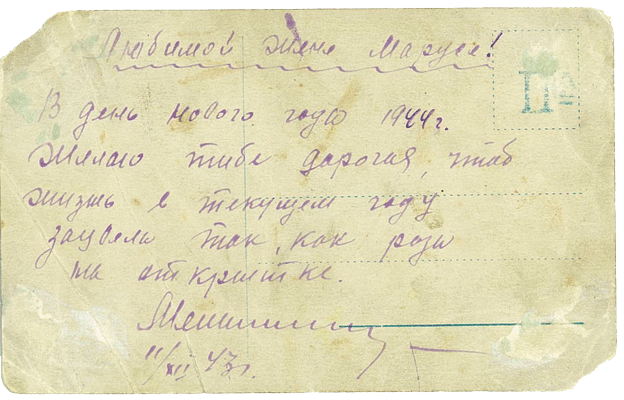 Любимой жене Марусе!
В день нового года 1944г.
Желаю тибе дорогая, чтоб
жизнь в текущем году
зацвела так, как роза
на откритке.
11/XII 43г.